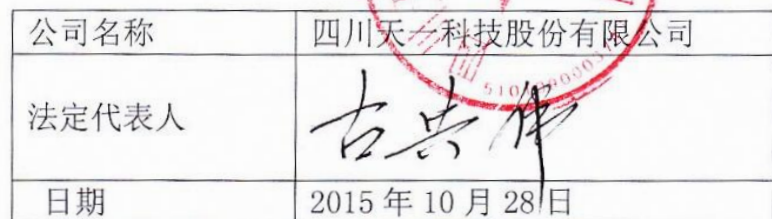 公司名称 四川天一科技股份有限公司
法定代表人 古共伟
日期 2015年10月28日